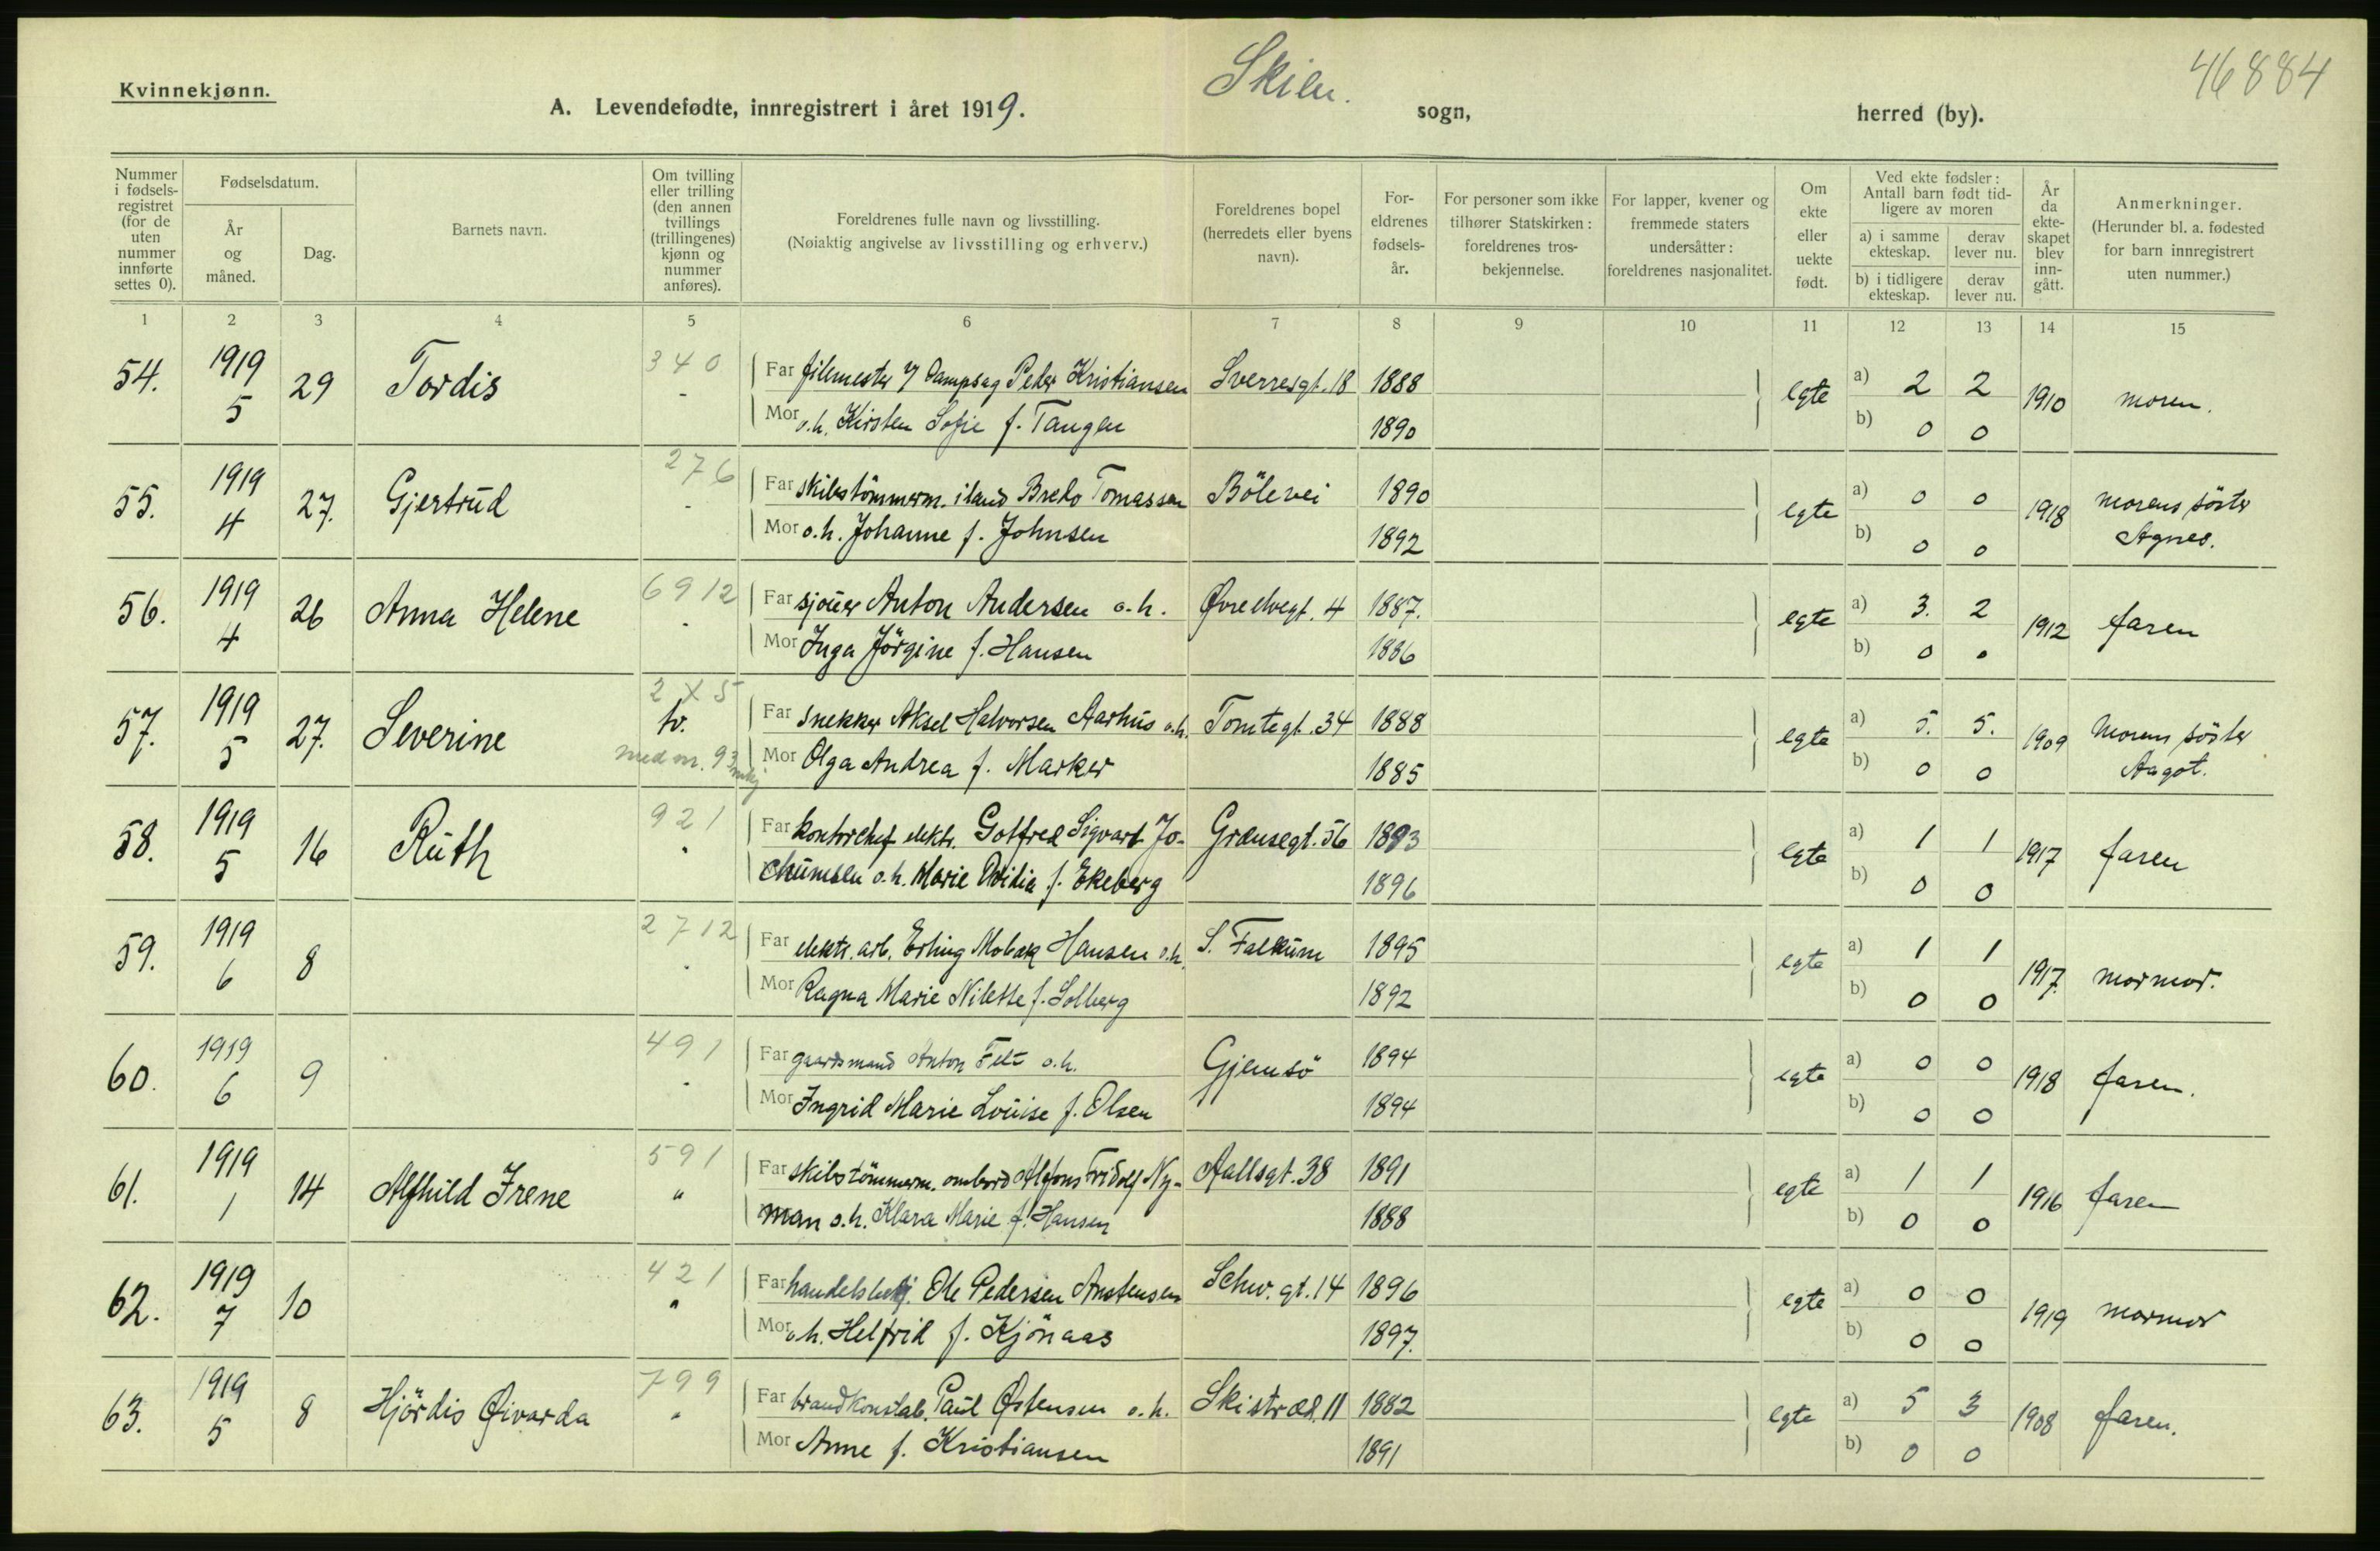 46884
Kvinnekjønn.
A. Levendefødte, innregistrert i året 1919. Skien. sogn, herred (by).
Nummer i fødsels-registret (for de uten nummer innførte settes 0).
Fødselsdatum.
År og måned.
Dag.
Barnets navn.
Om tvilling eller trilling (den annen tvillings (trillingenes) kjønn og nummer anføres).
Foreldrenes fulle navn og livsstilling.
(Nøiaktig angivelse av livsstilling og erhverv.)
Foreldrenes bopel (herredets eller byens navn).
For-eldrenes fødsels-år.
For personer som ikke tilhører Statskirken: foreldrenes tros-bekjennelse.
For lapper, kvener og fremmede staters undersåtter: foreldrenes nasjonalitet.
Om ekte eller uekte født.
Ved ekte fødsler: Antall barn født tid-ligere av moren
a) i samme ekteskap. derav lever nu.
b) i tidligere ekteskap. derav lever nu.
År da ekte-skapet blev inn-gått.
Anmerkninger.
(Herunder bl. a. fødested for barn innregistrert uten nummer.)
1 2 3 4 5 6 7 8 9 10 11 12 13 14 15
54. 1919 5 29 Tordis 340 -
Far filemester v/ Dampsag Peder Kristiansen Sverresgt. 18 1888
Mor o.h. Kirsten Sofie f. Tangen 1890
egte a) 2 2 b) 0 0 1910 moren.
55. 1919 4 27. Gjertrud 276 -
Far skibstömmerm. iland Brede Tomassen Bölevei 1890
Mor o.h. Johanne f. Johnsen 1892
egte a) 0 0 b) 0 0 1918 morens söster Agnes.
56. 1919 4 26 Anna Helene 6912 -
Far sjouer Anton Andersen o.h. Øvre elvegt. 4 1887.
Mor Inga Jörgine f. Hansen 1886
egte a) 3. 2 b) 0 0 1912 faren
57. 1919 5 27. Severine 2 X 5 tv. med nr. 93 mkj
Far snekker Aksel Halvorsen Aarhus o.h. Tomtegt. 34 1888
Mor Olga Andrea f. Marker 1885
egte a) 5. 5. b) 0 0 1909 Morens söster Aagot.
58. 1919 5 16 Ruth 921 "
Far kontorchef elektr. Gotfred Sigvart Jo- Grænsegt. 56 1893
chumsen o.h. Marie Ovidia f. Ekeberg 1896
egte a) 1 1 b) 0 0 1917 faren
59. 1919 6 8 2712 "
Far elektr. arb. Erling Hansen o.h. S. Falkum 1895
Mor Ragna Marie Nilette f. Solberg 1892
egte a) 1 1 b) 0 0 1917. mormor.
60. 1919 6 9 491 "
Far gaardsmand Anton Felt o.h. Gjemsö 1894
Mor Ingrid Marie Louise f. Olsen 1894
egte a) 0 0 b) 0 0 1918 faren.
61. 1919 1 14 Alfhild Irene 591 "
Far skibstömmerm. ombord Alfons Fridolf Ny- Aallsgt. 38 1891
man o.h. Klara Marie f. Hansen 1888
egte a) 1 1 b) 0 0 1916 faren
62. 1919 7 10 421 "
Far handelsbetj. Ole Pedersen Anstensen Schw. gt. 14 1896
Mor o.h. Helfrid f. Kjönaas 1897.
egte a) 0 0 b) 0 0 1919 mormor
63. 1919 5 8 Hjördis Øivarda 799 "
Far brandkonstab. Paul Østensen o.h. Skistræd. 11 1882
Mor Anne f. Kristiansen 1891
egte a) 5 3 b) 0 0 1908 faren.